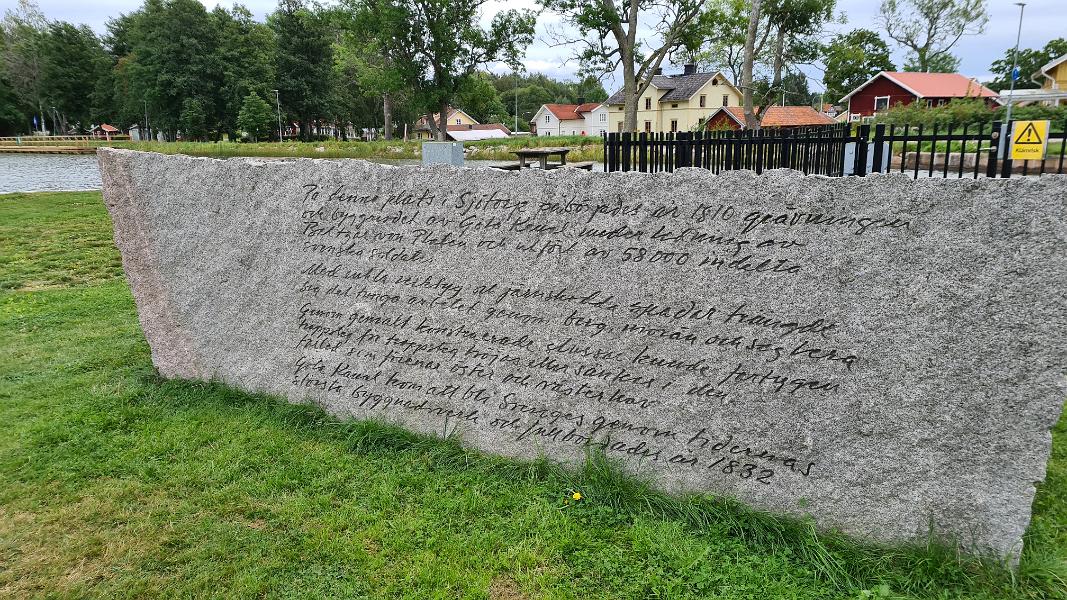 På denne plats i Sjötorp påbörjades år 1810 grävningen
och byggnadet av Göta Kanal under ledning av
Baltzar von Platen och utfört av 58000 indelta
svenska soldater.
Med enkla verktyg at järnskodda spadar trängde
sig det tunga arbetet genom berg, morän och seg lera
Genom genialt konstruerade slussar kunde fartygen
trappsteg för trappsteg höjas eller sänkas i den
farled som förenar öster och västerhav
Göta Kanal kom att bli Sveriges genom tidernas
största byggnadsverk och fullbordades år 1832
Klämrisk